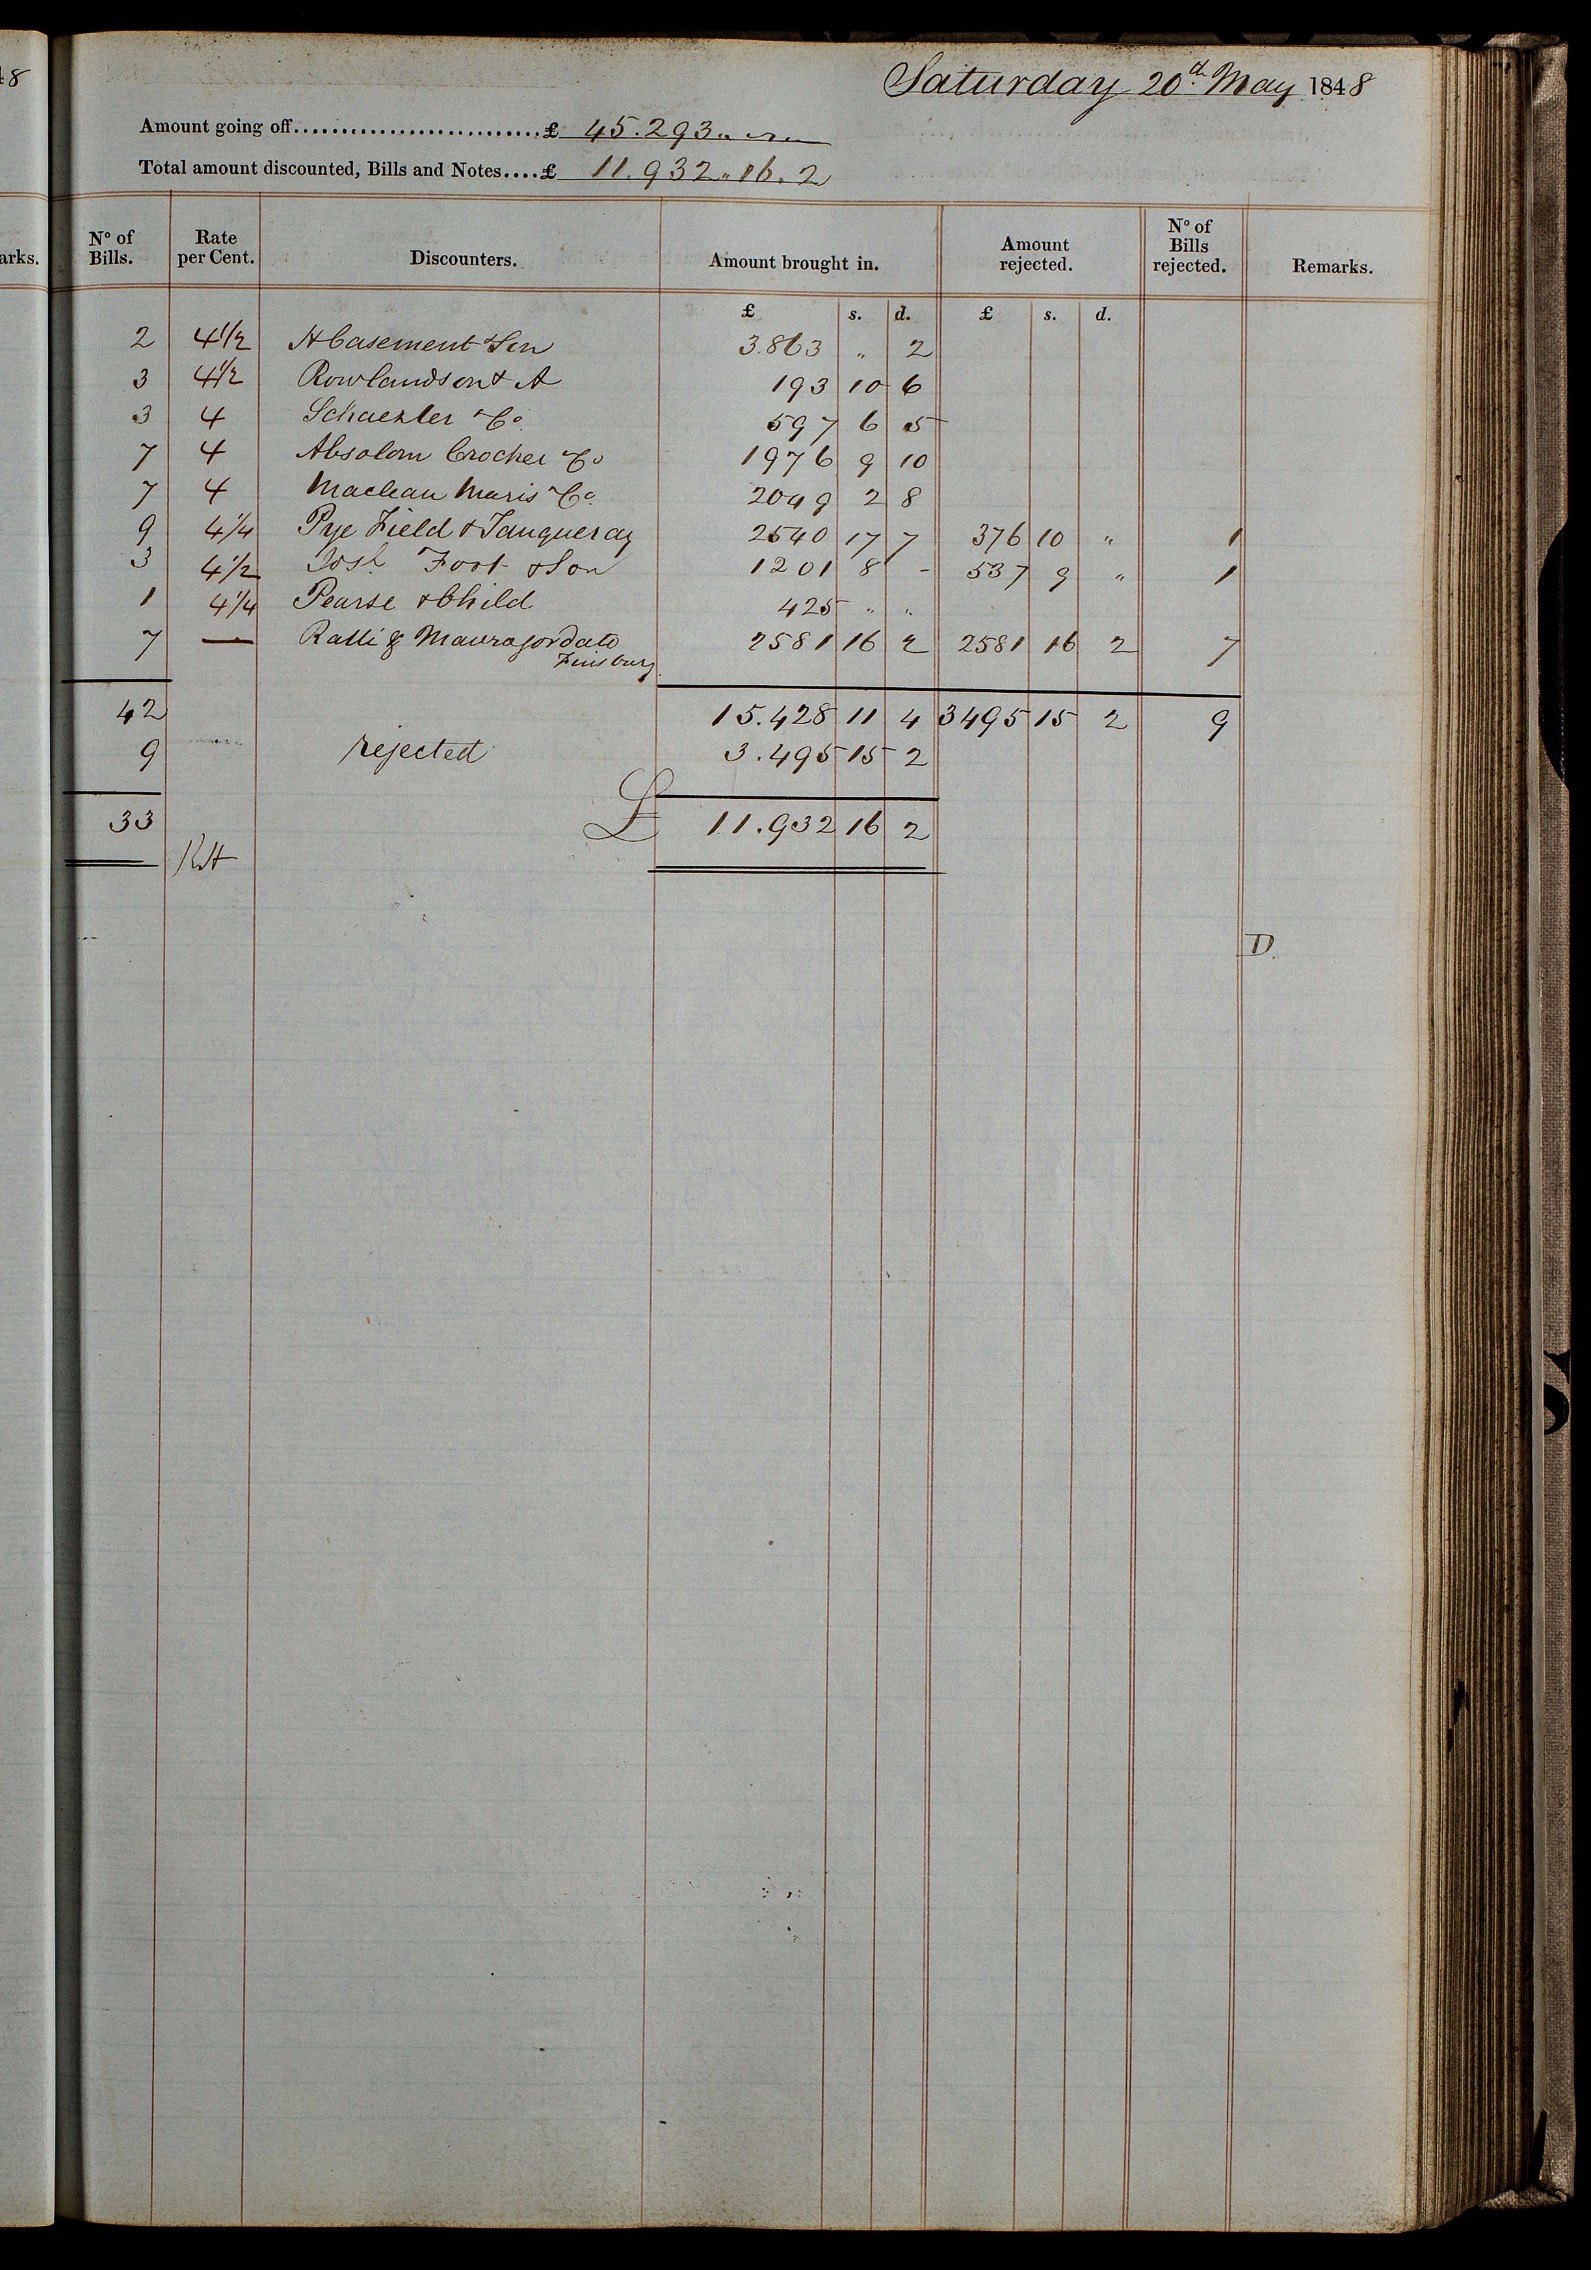 48
Saturday 20th May 1848
Amount going off..........................£ 45.293 " "
Total amount discounted, Bills and Notes....£ 11.932 " 16 . 2
arks.
No of Bills. Rate per Cent. Discounters. Amount brought in. Amount rejected. No of Bills rejected. Remarks.
£ s. d. £ s. d.
2 4 1/2 H Casement & Son 3.863 " 2
3 4 1/2 Rowlandson & A 193 10 6
3 4 & Co 597 6 5
7 4 Absolom Crocker & Co 1976 9 10
7 4 Maclean Maris & Co 2049 2 8
9 4 1/4 Pye Field & Tanqueray 2540 17 7 376 10 " 1
3 4 1/2 Josh Foot & Son 1201 8 - 537 9 " 1
1 4 1/4 Pearse & Child 425 " "
7 — Ralli & Mavrogordato 2581 16 2 2581 16 2 7
Finsbury
42 15.428 11 4 3495 15 2 9
9 rejected 3.495 15 2
33 £ 11.932 16 2
RH
D.